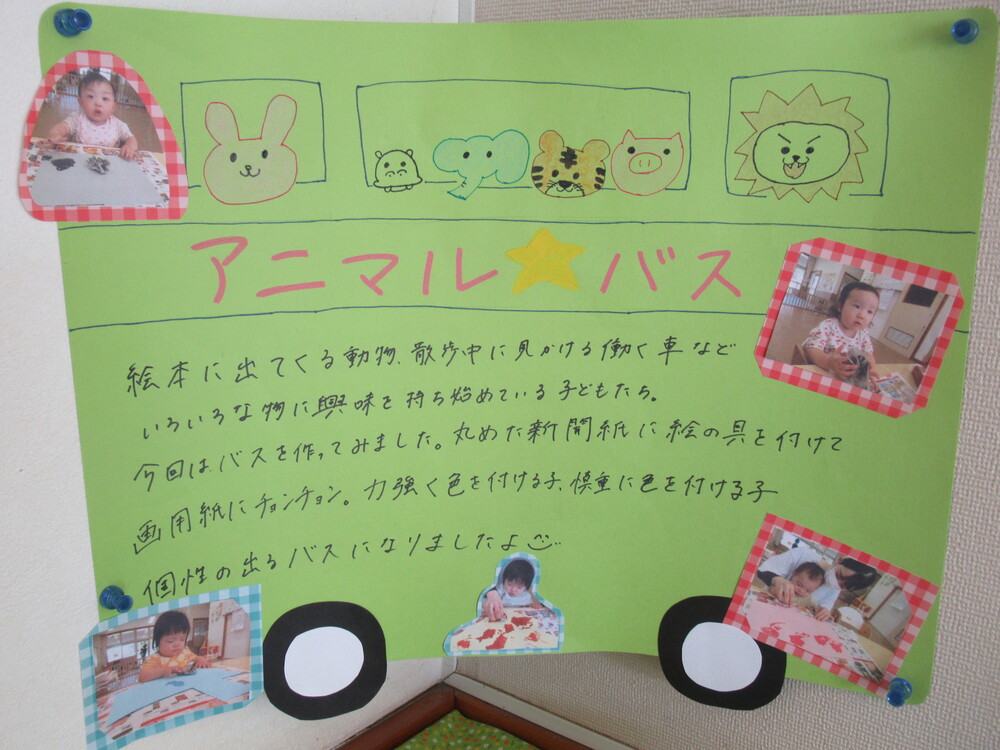 アニマル★バス
絵本に出てくる動物、散歩中に見かける働く車など
いろいろな物に興味を持ち始めている子どもたち。
今回は、バスを作ってみました。丸めた新聞紙に絵の具を付けて
画用紙にチョンチョン。力強く色を付ける子、慎重に色を付ける子
個性の出るバスになりましたよ